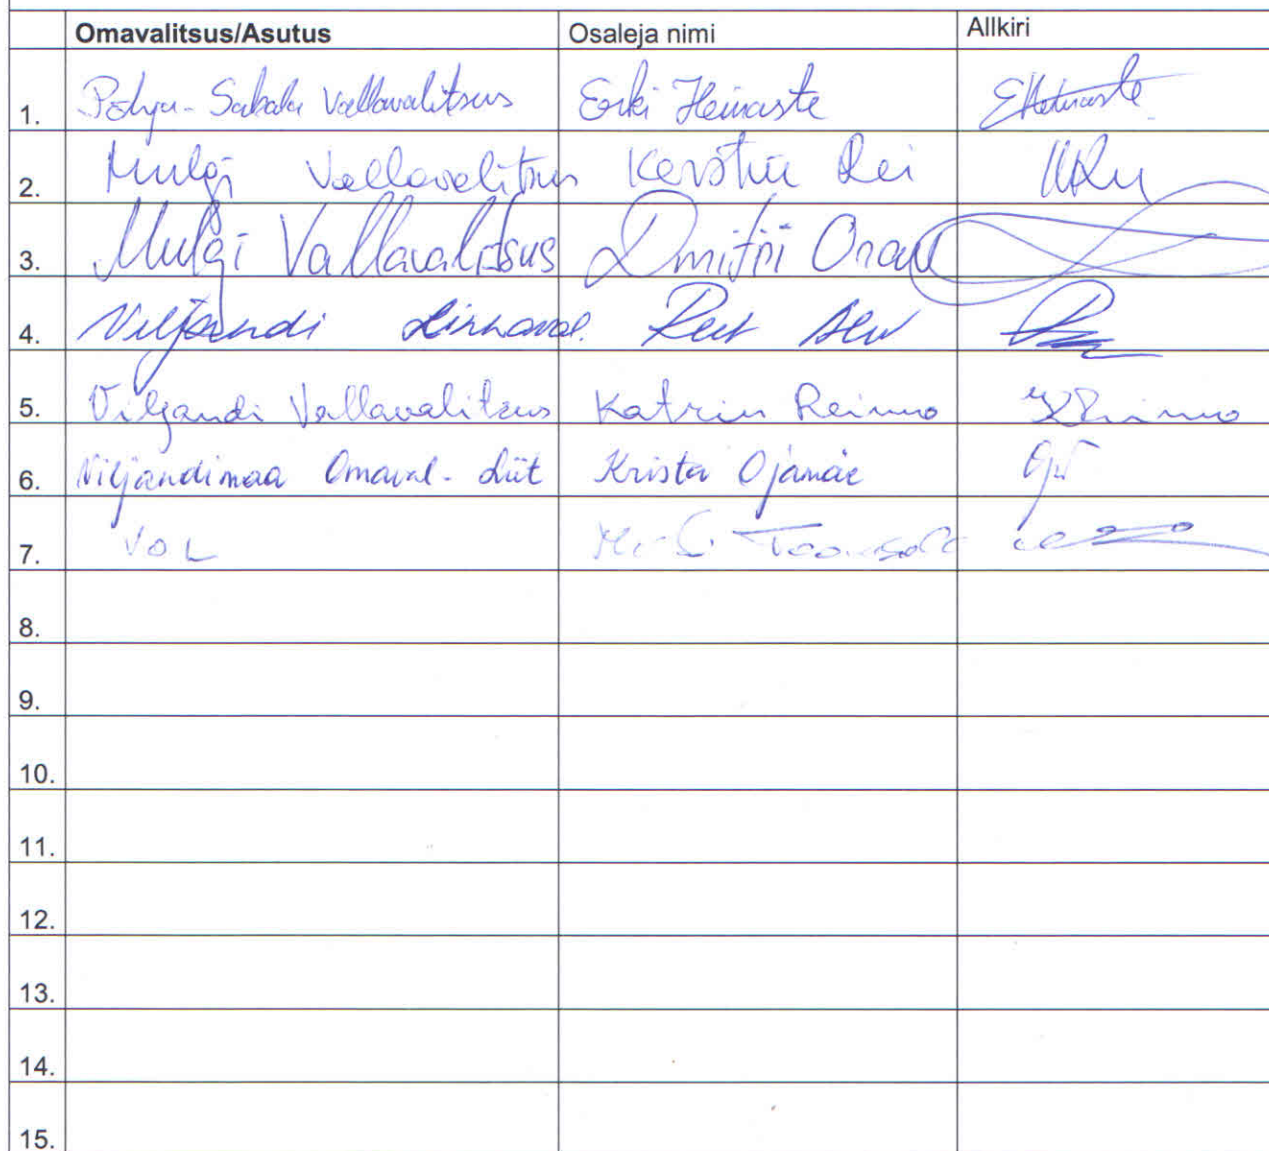 Omavalitsus/Asutus Osaleja nimi Allkiri
1. Põhja-Sakala Vallavalitsus Erki Heinaste EHeinaste
2. Mulgi Vallavalitsus Kerstin Rei
3. Mulgi Vallavalitsus Dmitri Orav
4. Viljandi Linnaval.
5. Viljandi Vallavalitsus Katrin Reimo KReimo
6. Viljandimaa Omaval. Liit Krista Ojamäe
7. VOL
8.
9.
10.
11.
12.
13.
14.
15.